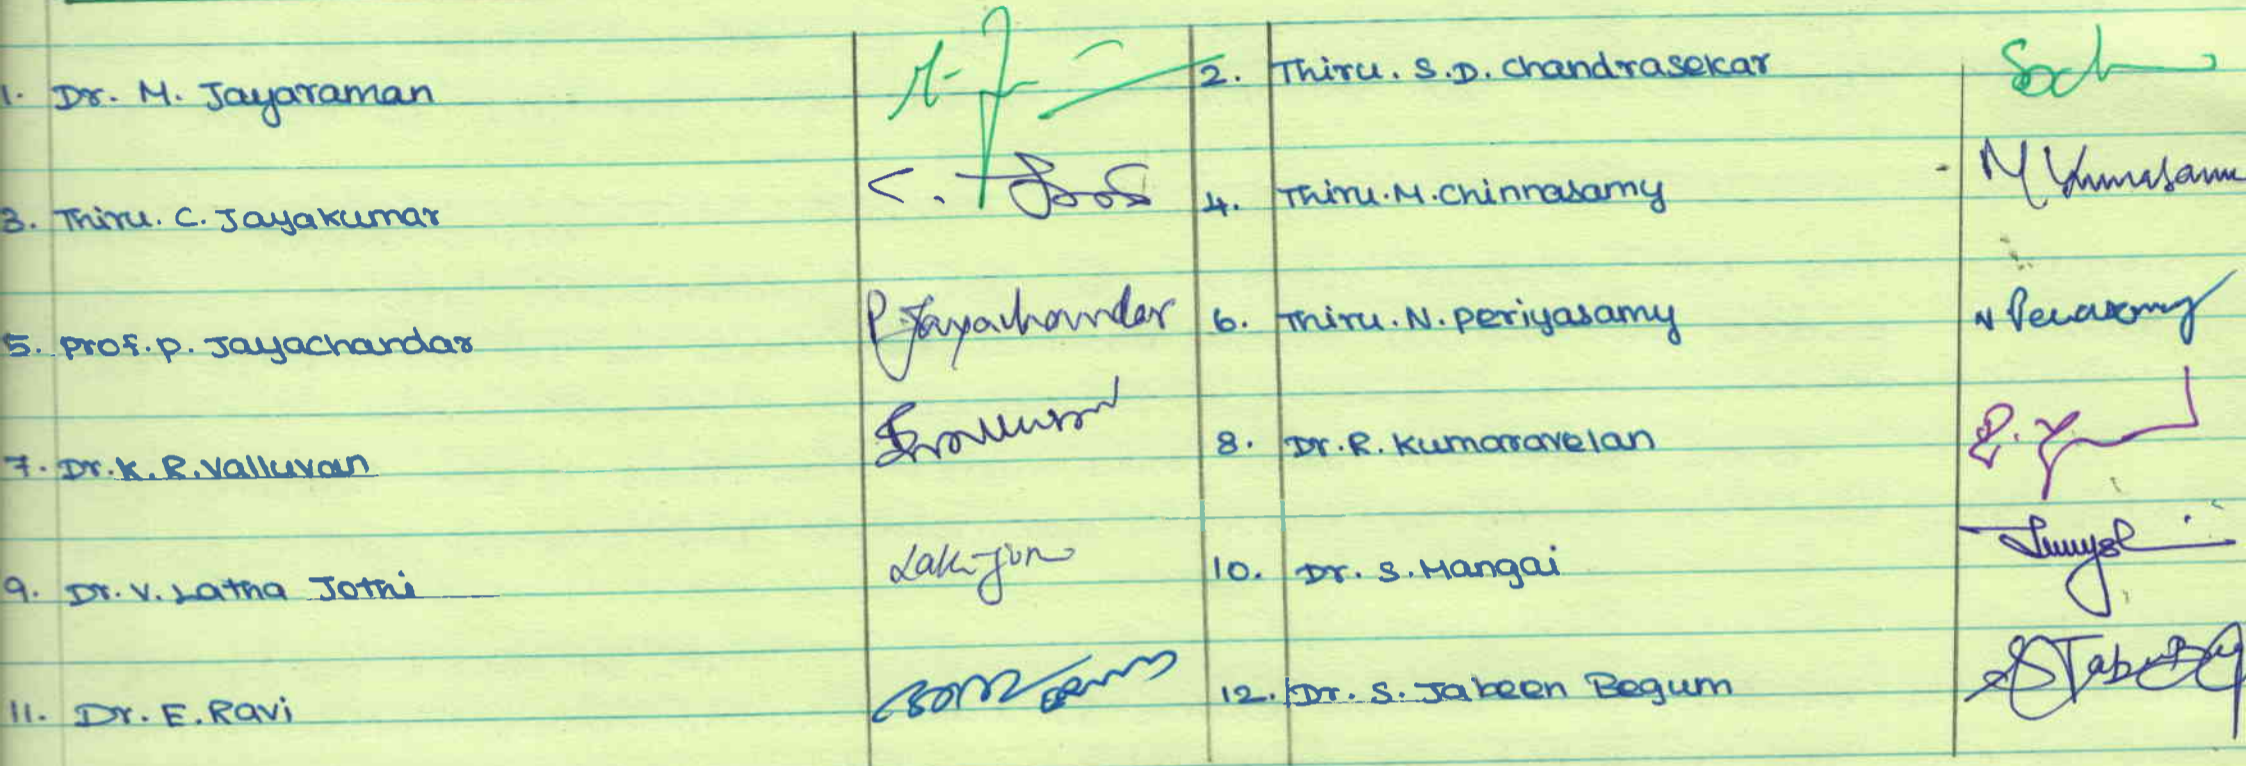 1. Dr. M. Jayaraman 2. Thiru. S.D. Chandrasekar
3. Thiru. C. Jayakumar 4. Thiru. M. Chinnasamy
5. Prof. P. Jayachandar P. Jayachandar 6. Thiru. N. Periyasamy
7. Dr. K. R. Valluvan 8. Dr. R. Kumaravelan
9. Dr. V. Latha Jothi 10. Dr. S. Mangai
11. Dr. E. Ravi 12. Dr. S. Jabeen Begum